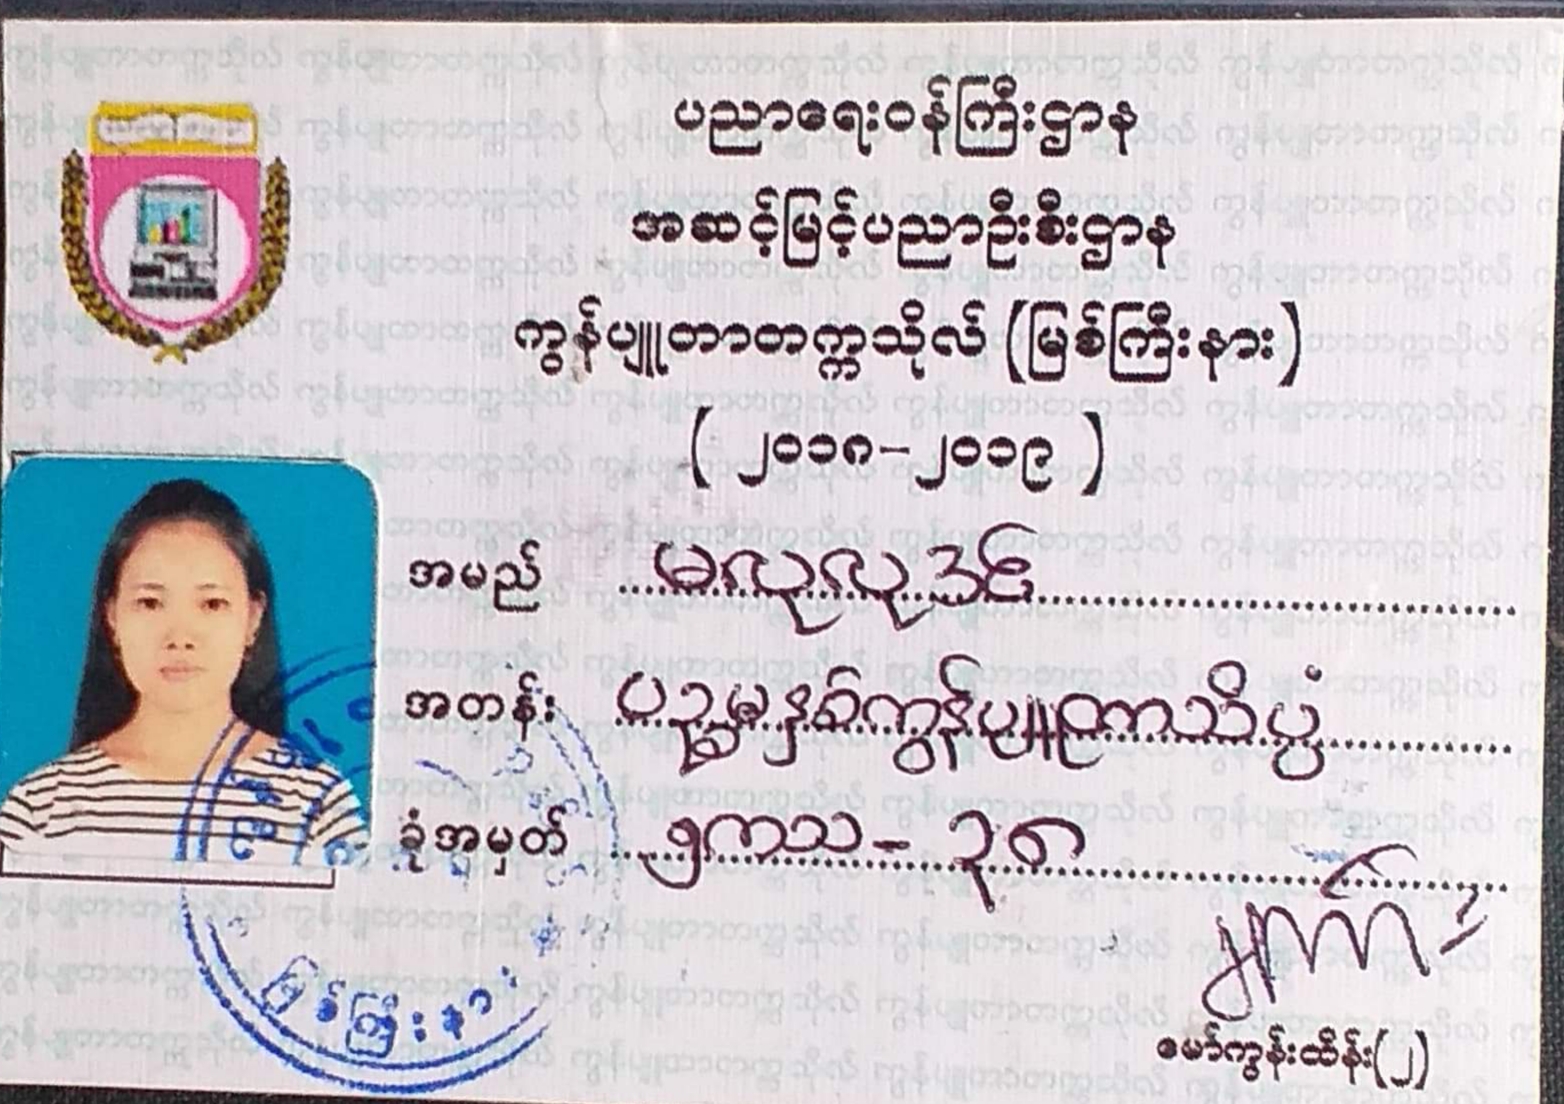 ပညာရေးဝန်ကြီးဌာန
အဆင့်မြင့်ပညာဦးစီးဌာန
ကွန်ပျူတာတက္ကသိုလ် (မြစ်ကြီးနား)
( ၂၀၁၈-၂၀၁၉ )
အမည် မလုလုဒင်
အတန်း ပဉ္စမနှစ်ကွန်ပျူတာသိပ္ပံ
ခုံအမှတ် ၅ကသ - ၃၈
မော်ကွန်းထိန်း(၂)
မြစ်ကြီးနား